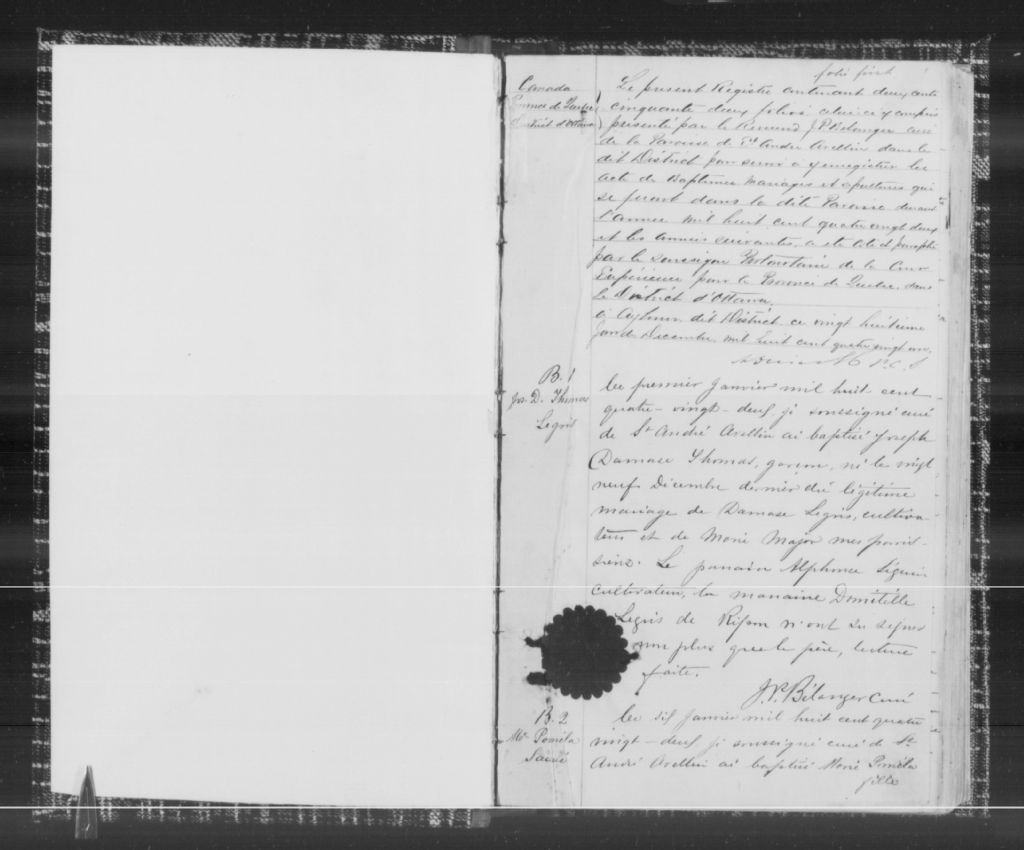 folio first
Canada
Province de Québec
District d'Ottawa
Le present Registre contenant deux cents
cinquante deux folios celui ci y compris
présenté par le Révérend J.P. Bélanger curé
de la Paroisse de St André Avellin dans le
dit District pour servir à y enregistrer les
acte de Baptêmes Mariages et sépultures qui
se feront dans la dite Paroisse durant
l'année mil huit cent quatre vingt deux
et les années suivantes, a été coté et paraphé
par le soussigné Protonotaire de la Cour
Supérieure pour la Province de Quebec, dans
le District d'Ottawa,
à Aylmer dit District ce vingt huitième
jour de Decembre mil huit cent quatre vingt un.
P.C.S
B. 1
Jos. D. Thomas
Legris
Le premier Janvier mil huit cent
quatre-vingt-deux, je soussigné curé
de St André Avellin ai baptisé Joseph
Damase Thomas, garçon, né le vingt
neuf Décembre dernier du légitime
mariage de Damase Legris, cultiva-
teur et de Marie Major mes parois-
siens. Le parrain Alphonse Séguin
cultivateur, la marraine Domitille
Legris de Ripon n'ont su signer
non plus que le père, lecture
faite.
J.P. Bélanger Curé
B. 2
Me Poméla
Le dix Janvier mil huit cent quatre
vingt-deux je soussigné curé de St
André Avellin ai baptisé Marie Poméla
fille